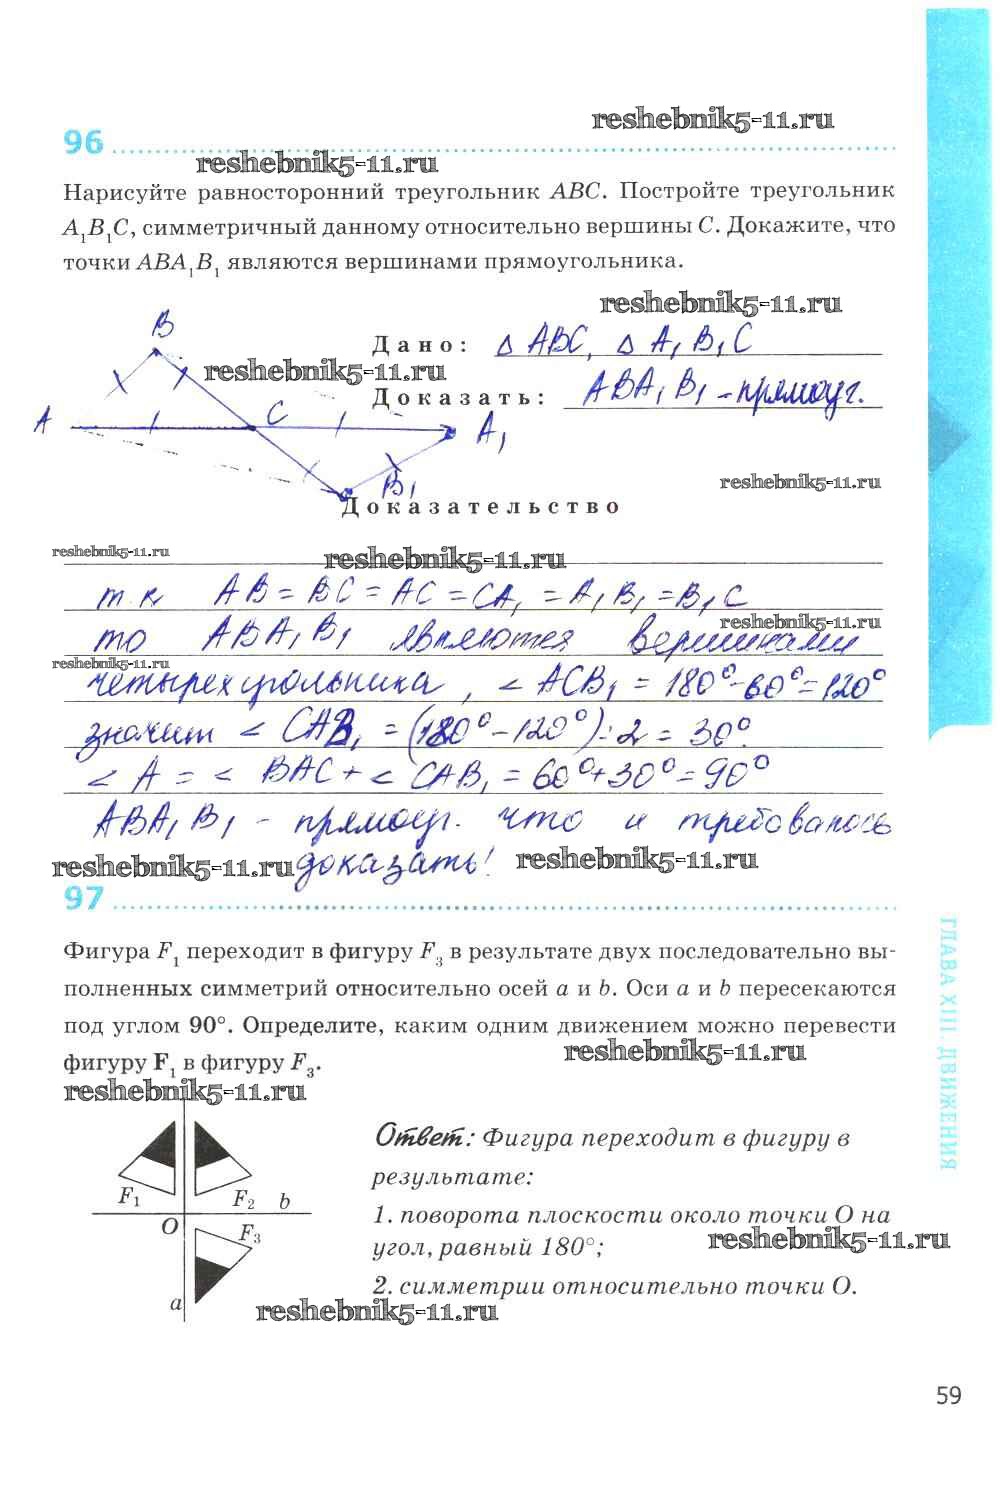 reshebnik5-11.ru
96
reshebnik5-11.ru
Нарисуйте равносторонний треугольник ABC. Постройте треугольник
A₁B₁C, симметричный данному относительно вершины C. Докажите, что
точки ABA₁B₁ являются вершинами прямоугольника.
reshebnik5-11.ru
B
Дано: Δ ABC, Δ A₁B₁C
reshebnik5-11.ru
Доказать: ABA₁B₁ - прямоуг.
A
C
A₁
B₁
reshebnik5-11.ru
Доказательство
reshebnik5-11.ru
reshebnik5-11.ru
т.к. AB = BC = AC = CA₁ = A₁B₁ = B₁C
reshebnik5-11.ru
то ABA₁B₁ являются вершинами
reshebnik5-11.ru
четырехугольника, ∠ ACB₁ = 180° - 60° = 120°
значит ∠ CAB₁ = (180° - 120°) : 2 = 30°.
∠ A = ∠ BAC + ∠ CAB₁ = 60° + 30° = 90°
ABA₁B₁ - прямоуг. что и требовалось
reshebnik5-11.ru доказать! reshebnik5-11.ru
97
Фигура F₁ переходит в фигуру F₃ в результате двух последовательно вы-
полненных симметрий относительно осей a и b. Оси a и b пересекаются
под углом 90°. Определите, каким одним движением можно перевести
фигуру F₁ в фигуру F₃.
reshebnik5-11.ru
reshebnik5-11.ru
F₁
F₂
b
O
F₃
a
Ответ: Фигура переходит в фигуру в
результате:
1. поворота плоскости около точки O на
угол, равный 180°;
reshebnik5-11.ru
2. симметрии относительно точки O.
reshebnik5-11.ru
ГЛАВА XIII. ДВИЖЕНИЯ
59